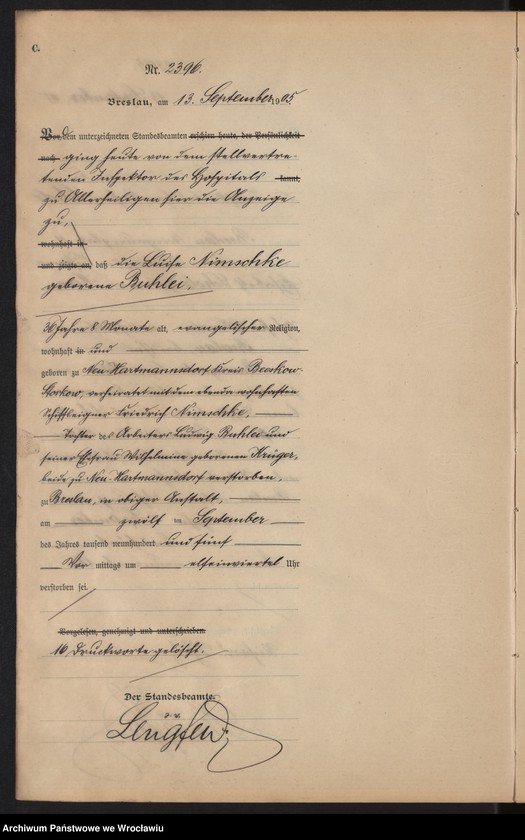 C.
Nr. 2396.
Breslau, am 13. September 1905
Vor dem unterzeichneten Standesbeamten erschien heute, der Persönlichkeit
nach ging heute von dem stellvertre-
tenden Inspektor des Hospitals kannt,
zu Allerheiligen hier die Anzeige
zu,
wohnhaft in
und zeigte an, daß die Luise Nimschke
geborene Buhlei,
36 Jahre 8 Monate alt, evangelischer Religion,
wohnhaft in und
geboren zu Neu-Hartmannsdorf Kreis Beeskow-
Storkow, verheiratet mit dem ebenda wohnhaften
Schiffseigner Friedrich Nimschke,
Tochter des Arbeiters Ludwig Buhlei und
seiner Ehefrau Wilhelmine geborenen Krüger,
beide zu Neu-Hartmannsdorf verstorben,
zu Breslau, in obiger Anstalt,
am zwölf ten September
des Jahres tausend neunhundert und fünf
Vor mittags um elfeinviertel Uhr
verstorben sei.
Vorgelesen, genehmigt und unterschrieben.
16 Druckworte gelöscht.
Der Standesbeamte.
Archiwum Państwowe we Wrocławiu